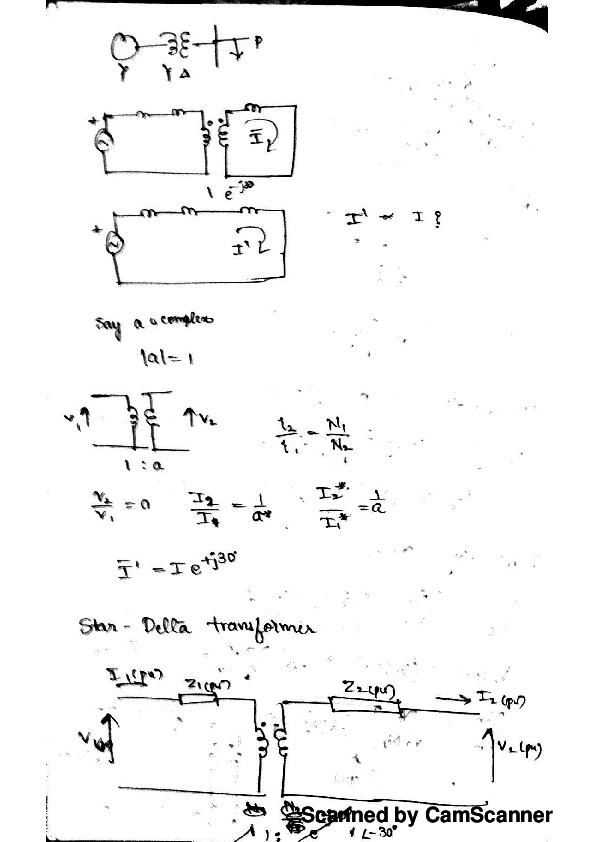 P
Y Y Δ
+
Ī
1 e^-j30
+
I' I' ~ I ?
Say a complex
|a| = 1
V1 V2
1 : a
i2/i1 = N1/N2
V2/V1 = a I2/I* = 1/a* I2*/I1* = 1/a
Ī' = I e^+j30°
Star - Delta transformer
I1(pu) Z1(pu) Z2(pu) I2(pu)
V2(pu)
Scanned by CamScanner
1 : 1 ∠-30°